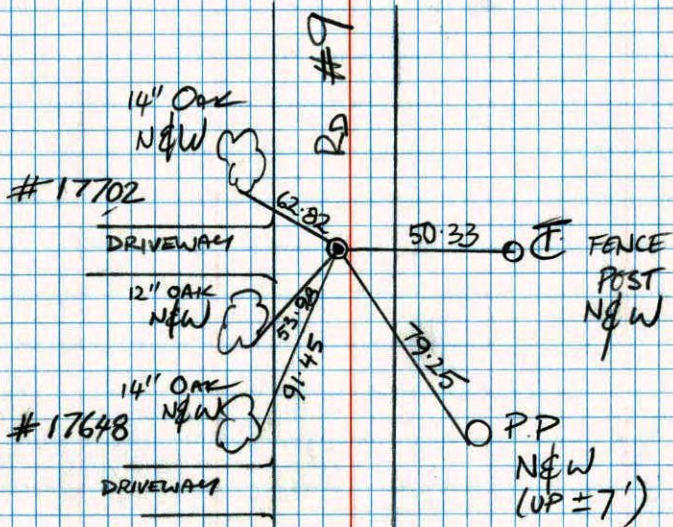 RD #9
14" OAK
N&W
# 17702
62.82
DRIVEWAY
50.33
F
FENCE
POST
N&W
12" OAK
N&W
53.98
91.45
79.25
14" OAK
N&W
# 17648
P.P
N&W
(UP ± 7')
DRIVEWAY